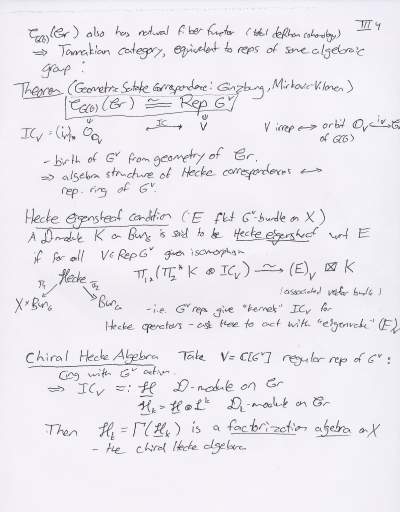 III 4
C_G(O)(Gr) also has natural fiber functor (total deRham cohomology)
⇒ Tannakian category, equivalent to reps of some algebraic
group:
Theorem (Geometric Satake Correspondence: Ginzburg, Mirkovic-Vilonen)
C_G(O)(Gr) ≅ Rep G^v
IC_V = (i_V)_!* O_{O_V} ←IC→ V V irrep ↔ orbit O_V ↪ Gr of G(O)
- birth of G^v from geometry of Gr.
⇒ algebra structure of Hecke correspondences ↔
rep. ring of G^v.
Hecke eigensheaf condition (E flat G^v-bundle on X)
A D-module K on Bun_G is said to be Hecke eigensheaf wrt E
if for all V∈Rep G^v given isomorphism
π_1* (π_2^* K ⊗ IC_V) ⥲ (E)_V ⊠ K
π_1 Hecke π_2
X × Bun_G Bun_G
(associated vector bundle)
- i.e. G^v reps give "kernels" IC_V for
Hecke operators - ask these to act with "eigenvalue" (E)_V
Chiral Hecke Algebra Take V = C[G^v] regular rep of G^v:
ring with G^v action.
⇒ IC_V =: H D-module on Gr
H_k = H ⊗ L^k D_k-module on Gr
Then H_k = Γ(H_k) is a factorization algebra on X
- the chiral Hecke algebra